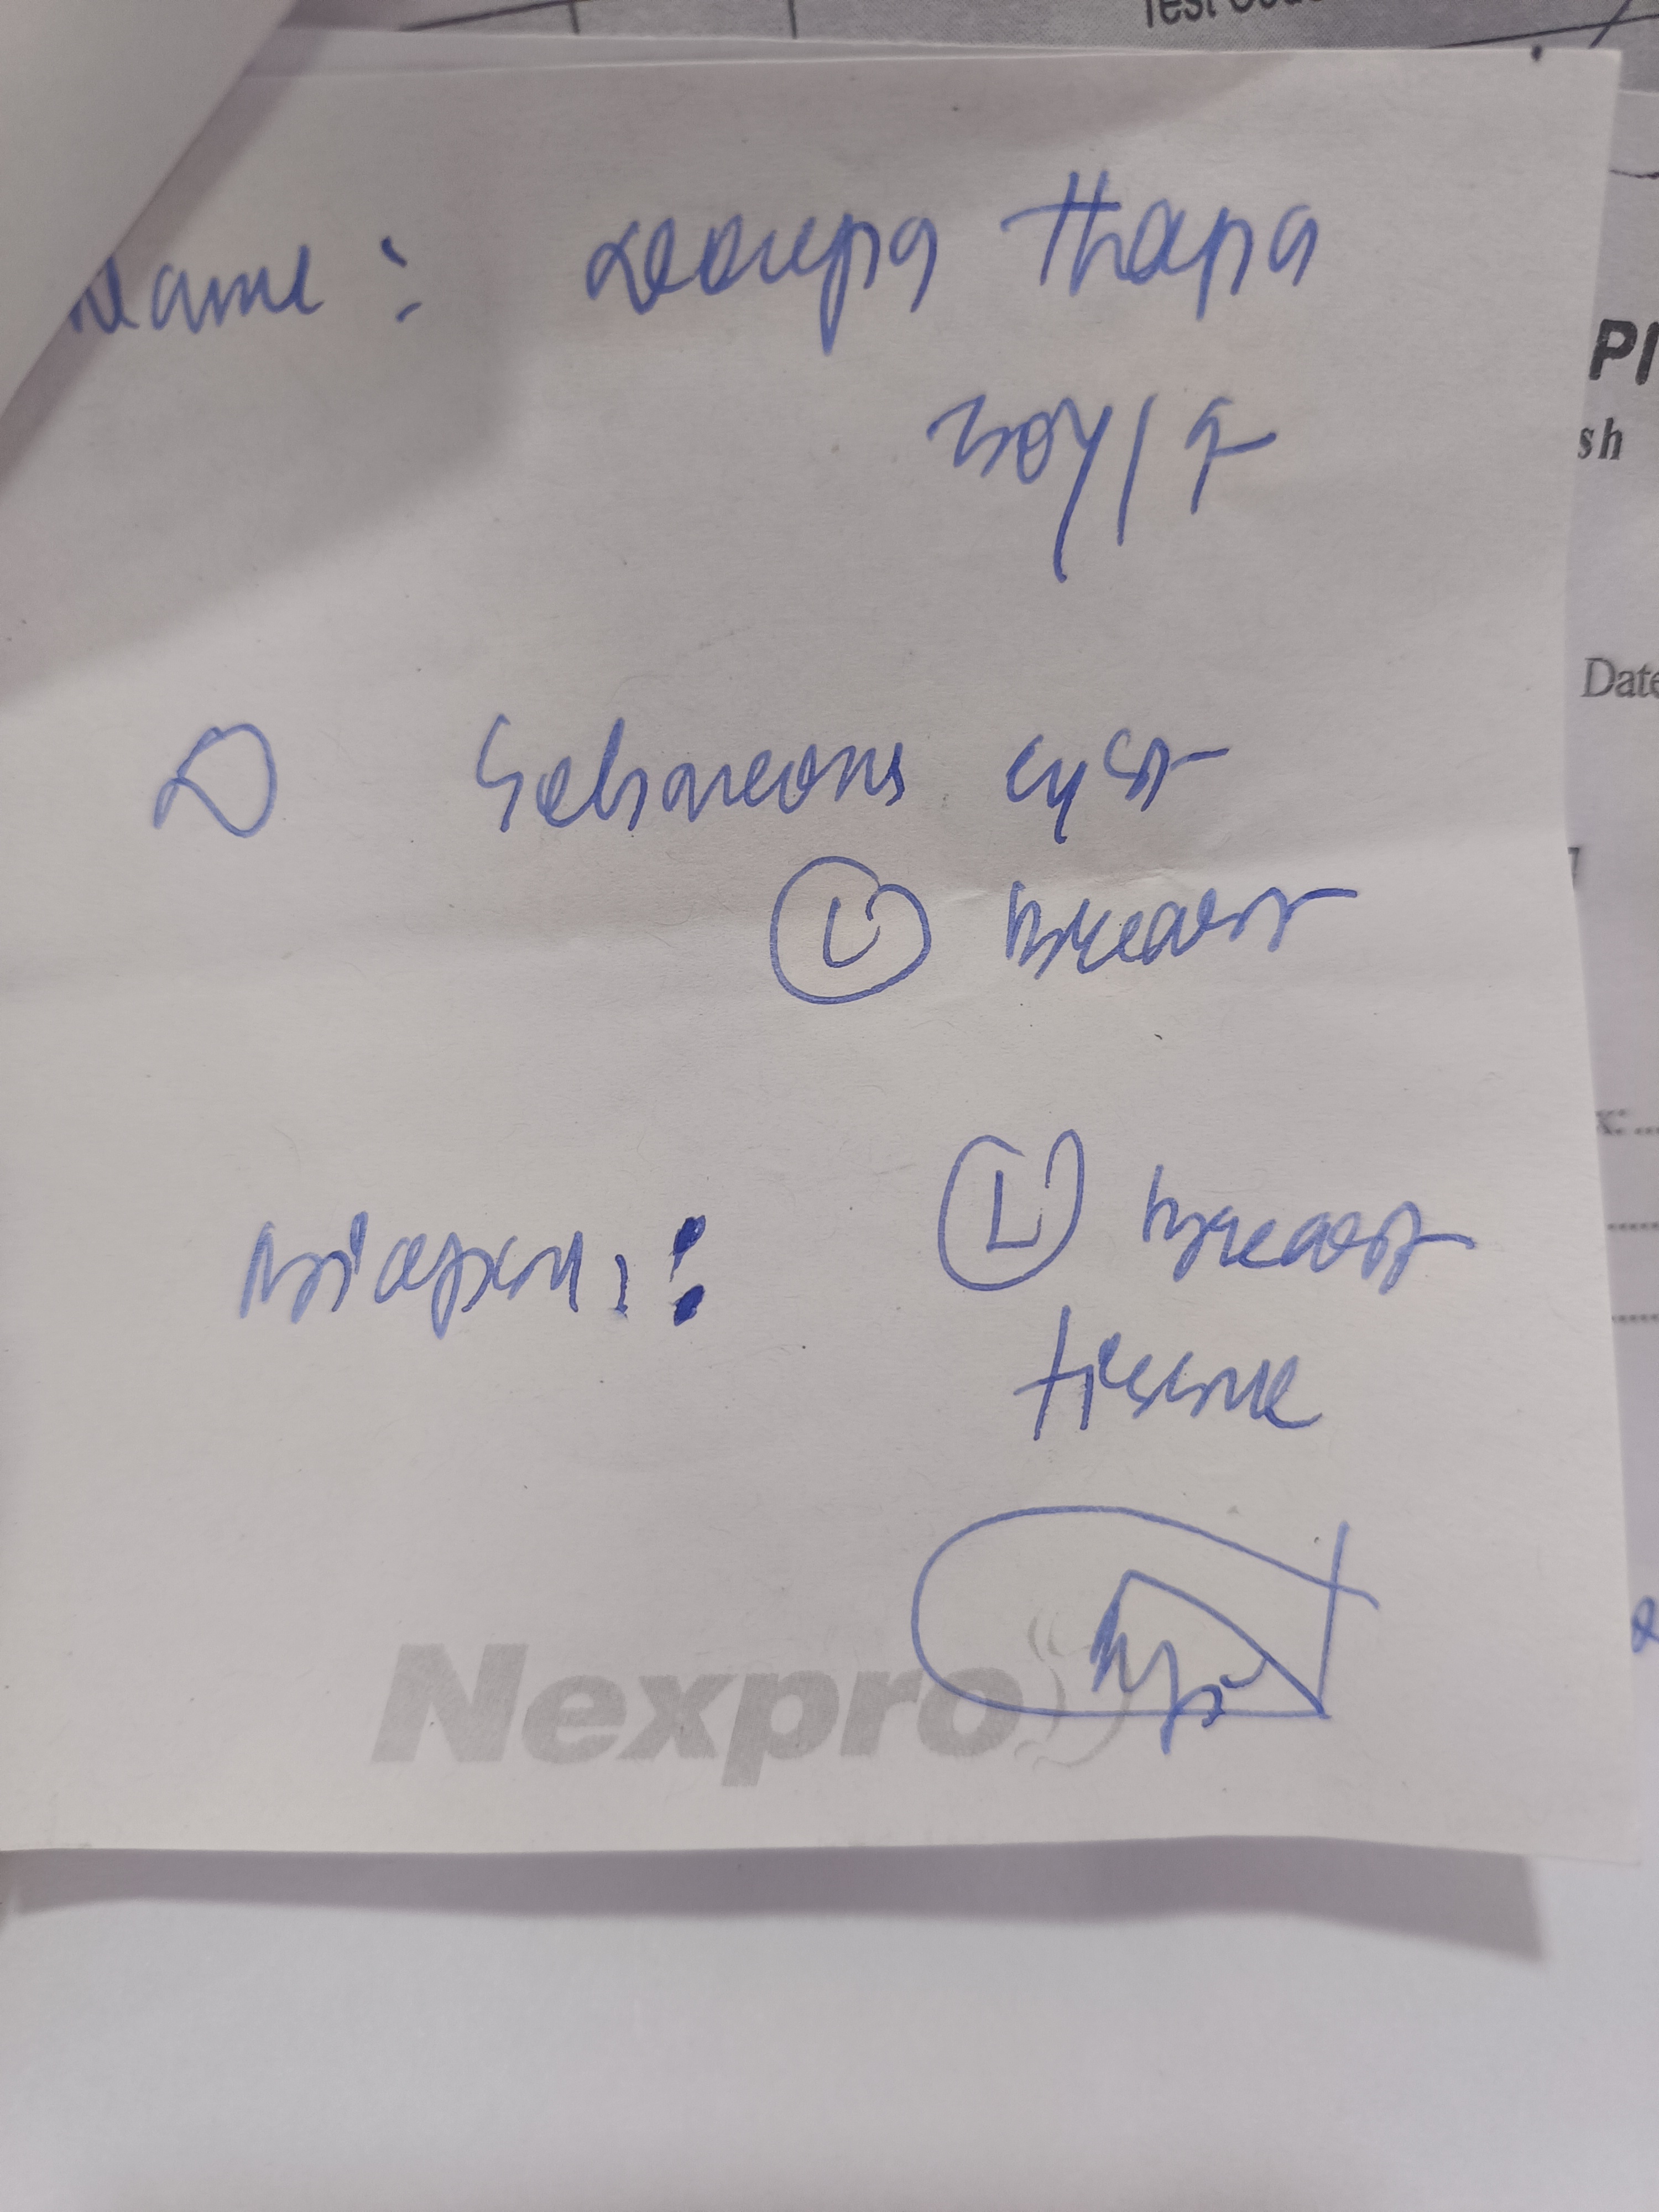 Test Co
Name : Thapa
30y/F
D Sebaceous cyst
L breast
Biopsy : L breast
tissue
Nexpro
PI
sh
Date
x: ...